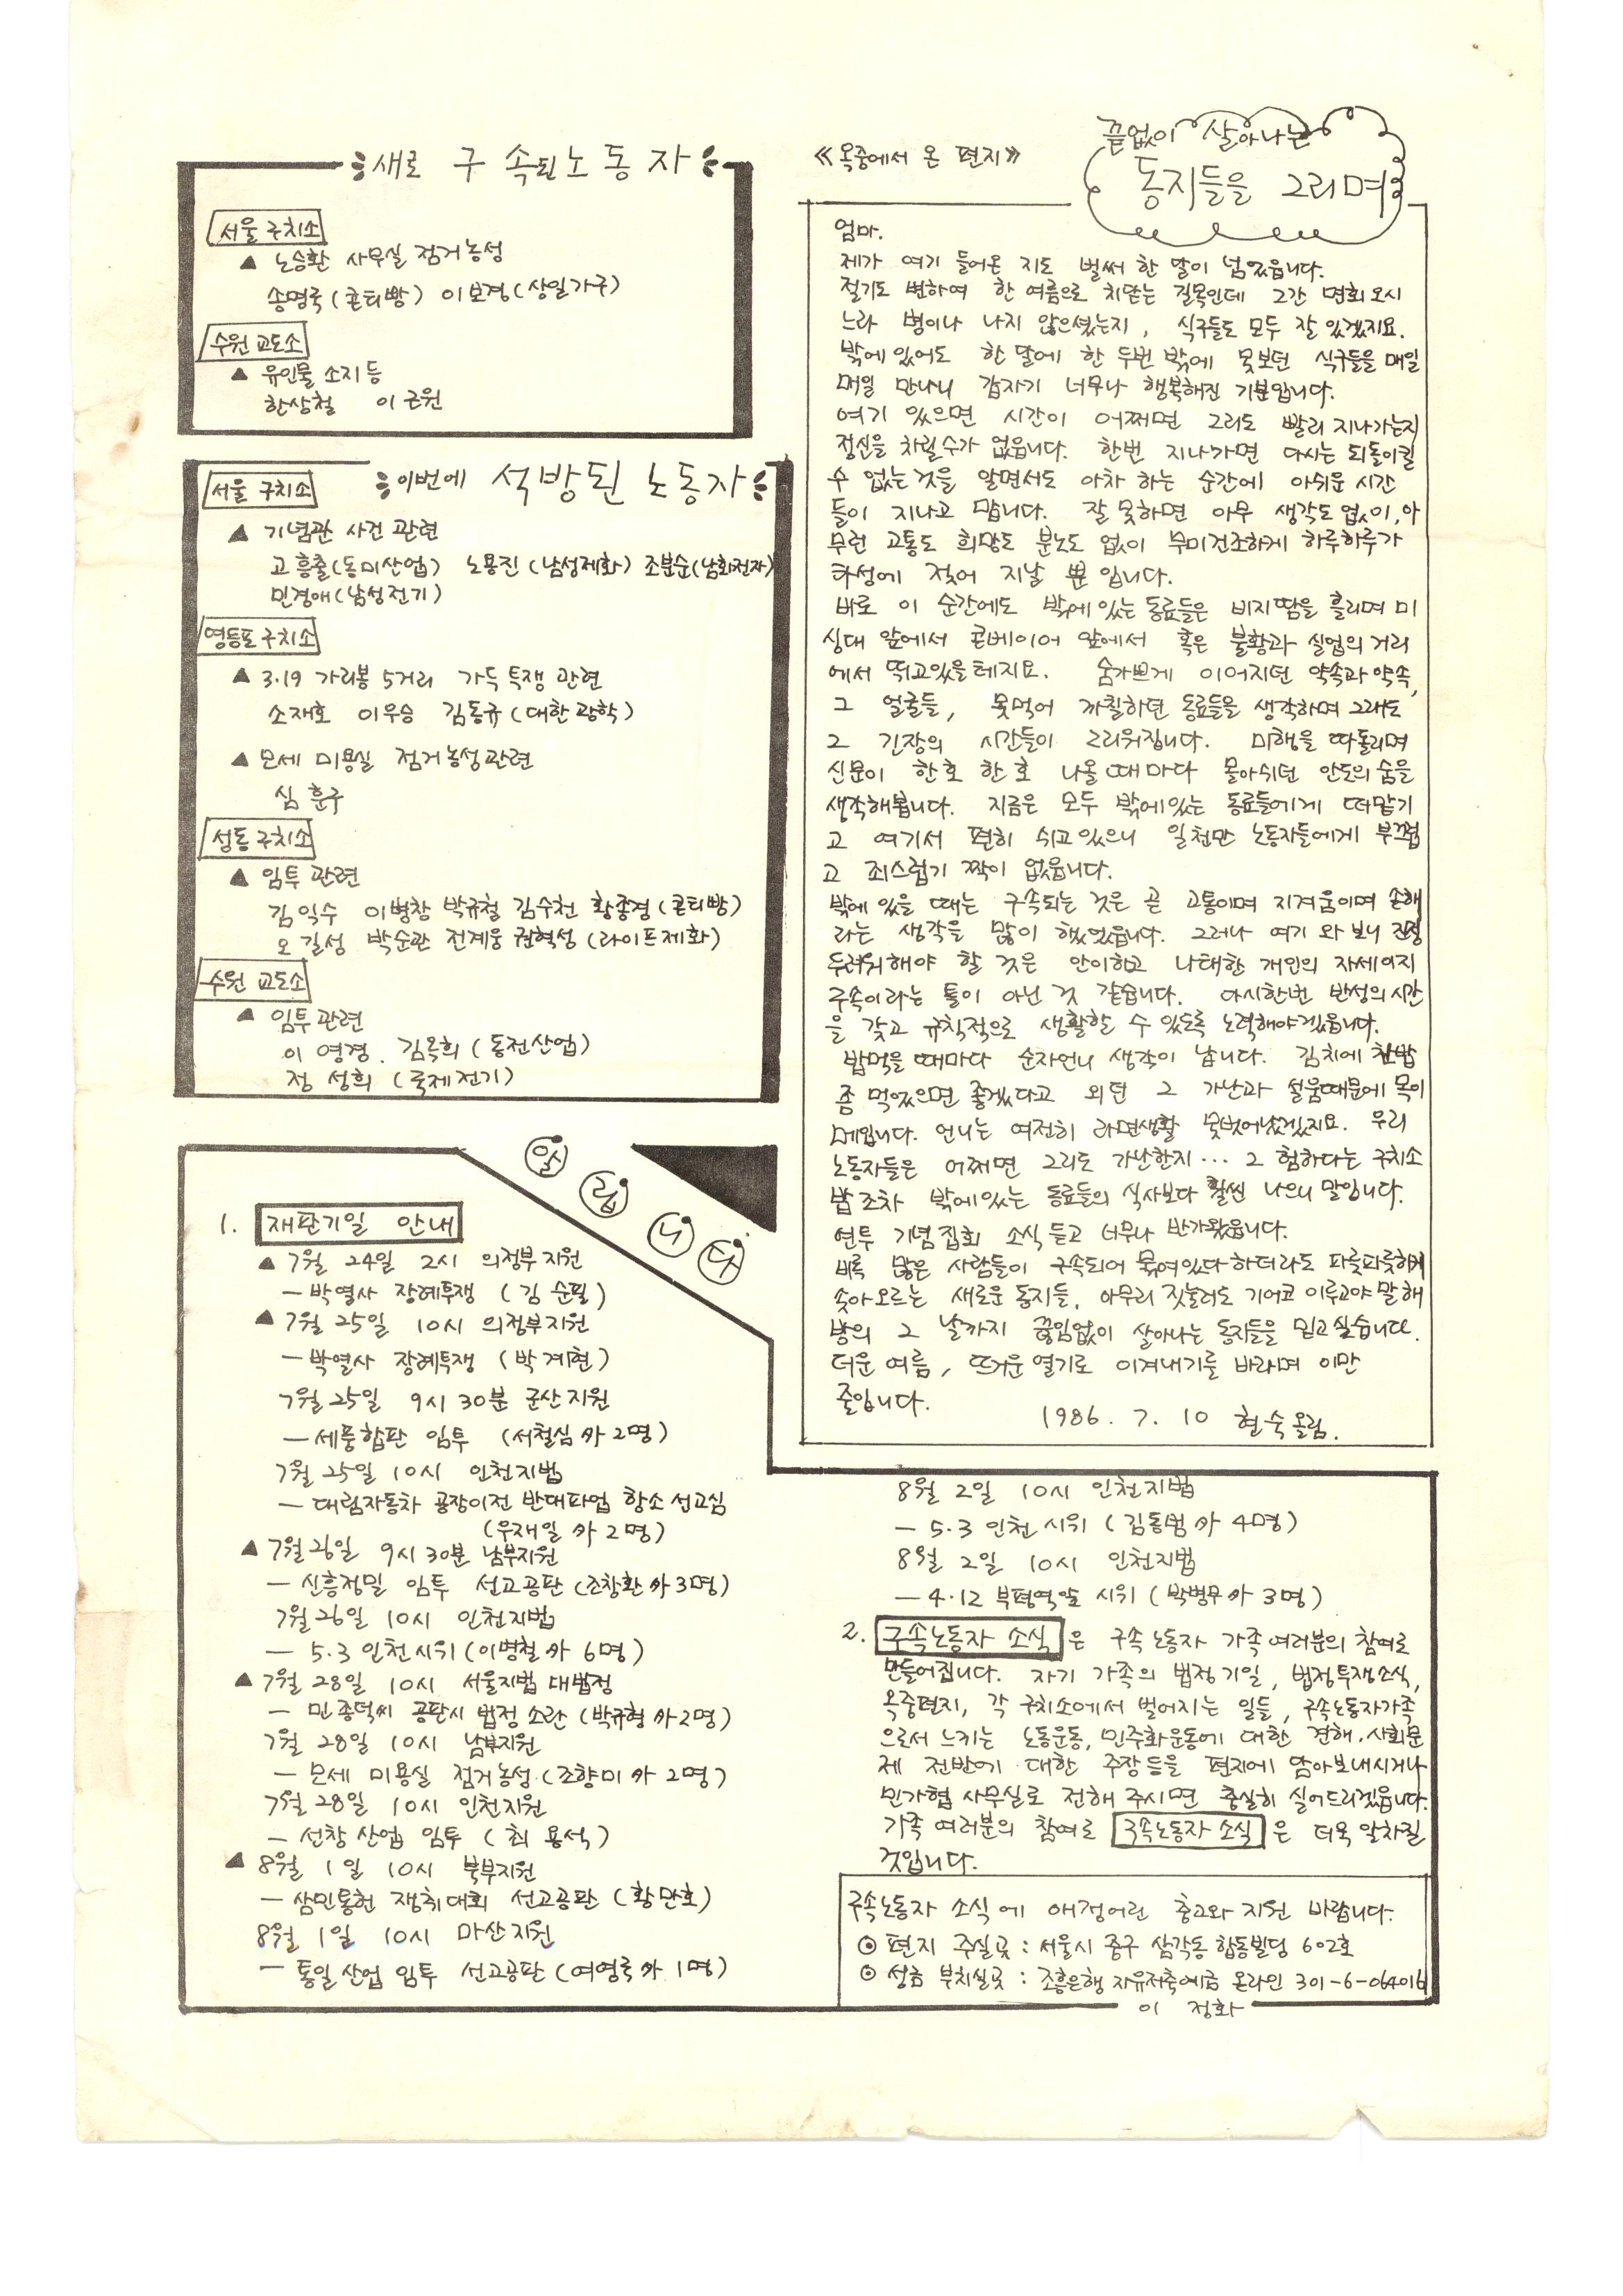 새로 구속된 노동자
서울 구치소
▲ 노승환 사무실 점거농성
송명국(콘티빵) 이보경(상일가구)
수원 교도소
▲ 유인물 소지 등
한상철 이근원
이번에 석방된 노동자
서울 구치소
▲ 기념관 사건 관련
고흥출(동미산업) 노용진(남성제화) 조분순(남화전자)
민경애(남성전기)
영등포 구치소
▲ 3.19 가리봉 5거리 가두 투쟁 관련
소재호 이우승 김동규(대한광학)
▲ 모세 미용실 점거농성 관련
심훈구
성동 구치소
▲ 임투 관련
김익수 이병창 박규철 김수천 황종경(콘티빵)
오길성 박순관 전계웅 권혁성(라이프제화)
수원 교도소
▲ 임투 관련
이영경. 김옥희(동전산업)
정성희(국제전기)
《옥중에서 온 편지》
끝없이 살아나는
동지들을 그리며
엄마.
제가 여기 들어온 지도 벌써 한 달이 넘었읍니다.
절기도 변하여 한 여름으로 치닫는 길목인데 그간 면회오시
느라 병이나 나지 않으셨는지, 식구들도 모두 잘 있겠지요.
밖에 있어도 한 달에 한 두번 밖에 못보던 식구들을 매일
매일 만나니 갑자기 너무나 행복해진 기분입니다.
여기 있으면 시간이 어쩌면 그리도 빨리 지나가는지
정신을 차릴수가 없읍니다. 한번 지나가면 다시는 되돌이킬
수 없는 것을 알면서도 아차 하는 순간에 아쉬운 시간
들이 지나고 맙니다. 잘 못하면 아무 생각도 없이, 아
무런 고통도 희망도 분노도 없이 무미건조하게 하루하루가
타성에 젖어 지날 뿐입니다.
바로 이 순간에도 밖에 있는 동료들은 비지땀을 흘리며 미
싱대 앞에서 콘베이어 앞에서 혹은 불황과 실업의 거리
에서 뛰고있을테지요. 숨가쁘게 이어지던 약속과 약속,
그 얼굴들, 못먹어 까칠하던 동료들을 생각하며 그래도
그 긴장의 시간들이 그리워집니다. 미행을 따돌리며
신문이 한호 한호 나올 때마다 몰아쉬던 안도의 숨을
생각해봅니다. 지금은 모두 밖에있는 동료들에게 떠맡기
고 여기서 편히 쉬고있으니 일천만 노동자들에게 부끄럽
고 죄스럽기 짝이 없읍니다.
밖에 있을 때는 구속되는 것은 곧 고통이며 지겨움이며 손해
라는 생각을 많이 했었읍니다. 그러나 여기 와 보니 진정
두려워해야 할 것은 안이하고 나태한 개인의 자세이지
구속이라는 틀이 아닌 것 같습니다. 다시한번 반성의 시간
을 갖고 규칙적으로 생활할 수 있도록 노력해야겠읍니다.
밥먹을 때마다 순자언니 생각이 납니다. 김치에 찬밥
좀 먹었으면 좋겠다고 외던 그 가난과 설움때문에 목이
메입니다. 언니는 여전히 라면생활 못벗어났겠지요. 우리
노동자들은 어쩌면 그리도 가난한지… 그 험하다는 구치소
밥조차 밖에있는 동료들의 식사보다 훨씬 나으니 말입니다.
연투 기념집회 소식 듣고 너무나 반가왔읍니다.
비록 많은 사람들이 구속되어 묶여있다 하더라도 파릇파릇하게
솟아오르는 새로운 동지들, 아무리 짓눌러도 기어코 이루고야 말 해
방의 그 날까지 끊임없이 살아나는 동지들을 믿고싶습니다.
더운 여름, 뜨거운 열기로 이겨내기를 바라며 이만
줄입니다.
1986. 7. 10 현숙 올림.
알립니다
1. 재판기일 안내
▲ 7월 24일 2시 의정부지원
— 박열사 장례투쟁 (김순필)
▲ 7월 25일 10시 의정부지원
— 박열사 장례투쟁 (박계현)
7월 25일 9시 30분 군산지원
— 세풍합판 임투 (서철심 外 2명)
7월 25일 10시 인천지법
— 대림자동차 공장이전 반대파업 항소 선고심
(우재일 外 2명)
▲ 7월 26일 9시 30분 남부지원
— 신흥정밀 임투 선고공판 (조창환 外 3명)
7월 26일 10시 인천지법
— 5.3 인천시위 (이병철 外 6명)
▲ 7월 28일 10시 서울지법 대법정
— 민종덕씨 공판시 법정 소란 (박규형 外 2명)
7월 28일 10시 남부지원
— 모세 미용실 점거농성 (조향미 外 2명)
7월 28일 10시 인천지원
— 선창산업 임투 (최용석)
▲ 8월 1일 10시 북부지원
— 삼민통헌 쟁취대회 선고공판 (황만호)
8월 1일 10시 마산지원
— 통일산업 임투 선고공판 (여영국 外 1명)
8월 2일 10시 인천지법
— 5.3 인천시위 (김동범 外 4명)
8월 2일 10시 인천지법
— 4.12 부평역앞 시위 (박병무 外 3명)
2. 구속노동자 소식 은 구속노동자 가족여러분의 참여로
만들어집니다. 자기 가족의 법정기일, 법정투쟁소식,
옥중편지, 각 구치소에서 벌어지는 일들, 구속노동자가족
으로서 느끼는 노동운동, 민주화운동에 대한 견해, 사회문
제 전반에 대한 주장등을 편지에 담아보내시거나
민가협 사무실로 전해 주시면 충실히 실어드리겠읍니다.
가족 여러분의 참여로 구속노동자 소식 은 더욱 알차질
것입니다.
구속노동자 소식에 애정어린 충고와 지원 바랍니다.
⊙ 편지 주실곳 : 서울시 중구 삼각동 합동빌딩 602호
⊙ 성금 부치실곳 : 조흥은행 자유저축예금 온라인 301-6-064016
이정화